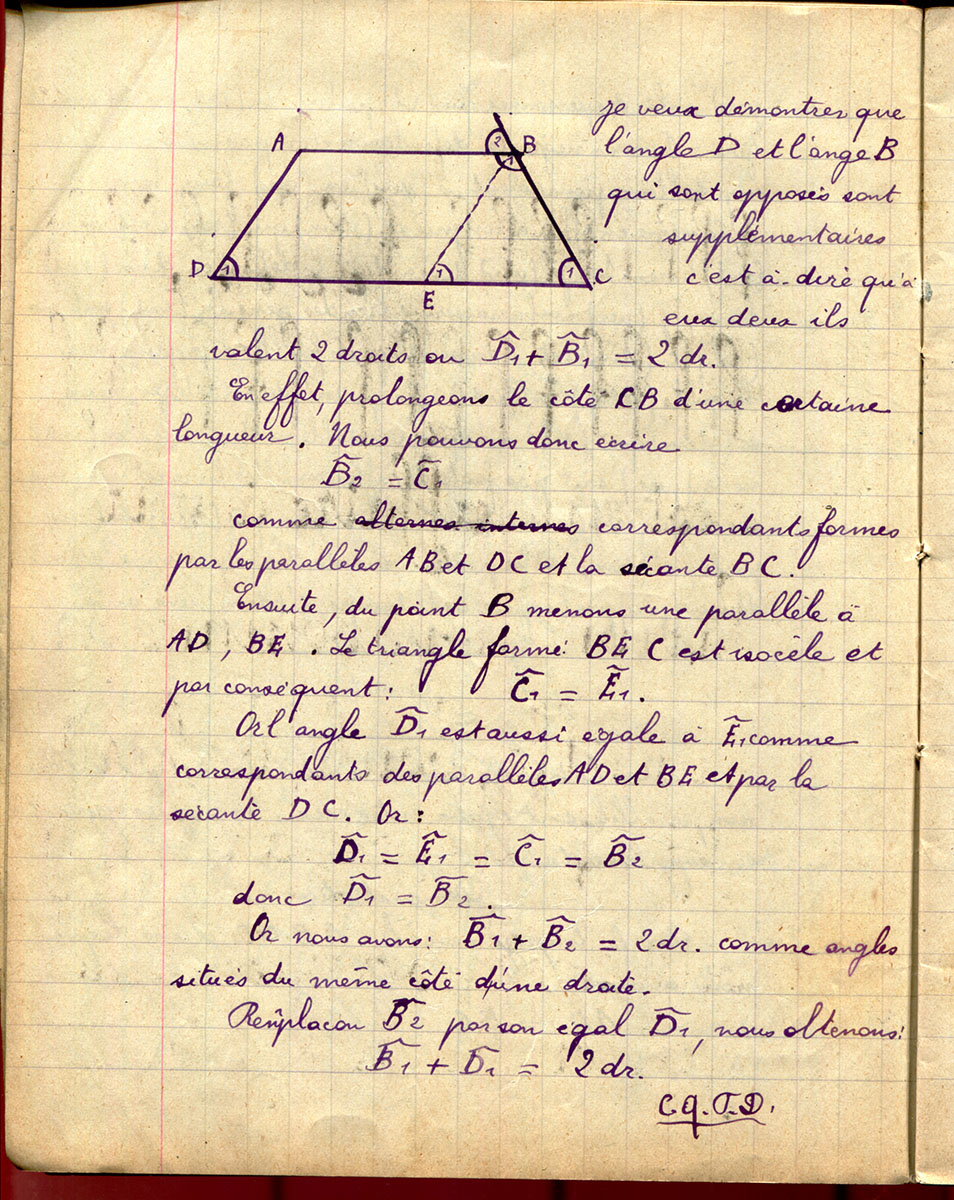 je veux démontrer que
l'angle D et l'ange B
qui sont opposés sont
supplémentaires
c'est à-dire qu'à
eux deux ils
A
2
B
1
D
1
1
1
C
E
valent 2 droits ou D̂1 + B̂1 = 2 dr.
En effet, prolongeons le côté CB d'une certaine
longueur. Nous pouvons donc écrire
B̂2 = Ĉ1
comme alternes internes correspondants formes
par les parallèles AB et DC et la sécante BC.
Ensuite, du point B menons une parallèle à
AD, BE. Le triangle formé: BEC est isocèle et
par conséquent: Ĉ1 = Ê1.
Or l angle D̂1 est aussi égale à Ê1 comme
correspondants des parallèles AD et BE et par la
sécante DC. Or:
D̂1 = Ê1 = Ĉ1 = B̂2
donc D̂1 = B̂2.
Or nous avons: B̂1 + B̂2 = 2 dr. comme angles
situés du même côté d'une droite.
Remplacon B̂2 par son égal D̂1, nous obtenons:
B̂1 + D̂1 = 2 dr.
C.Q.F.D.